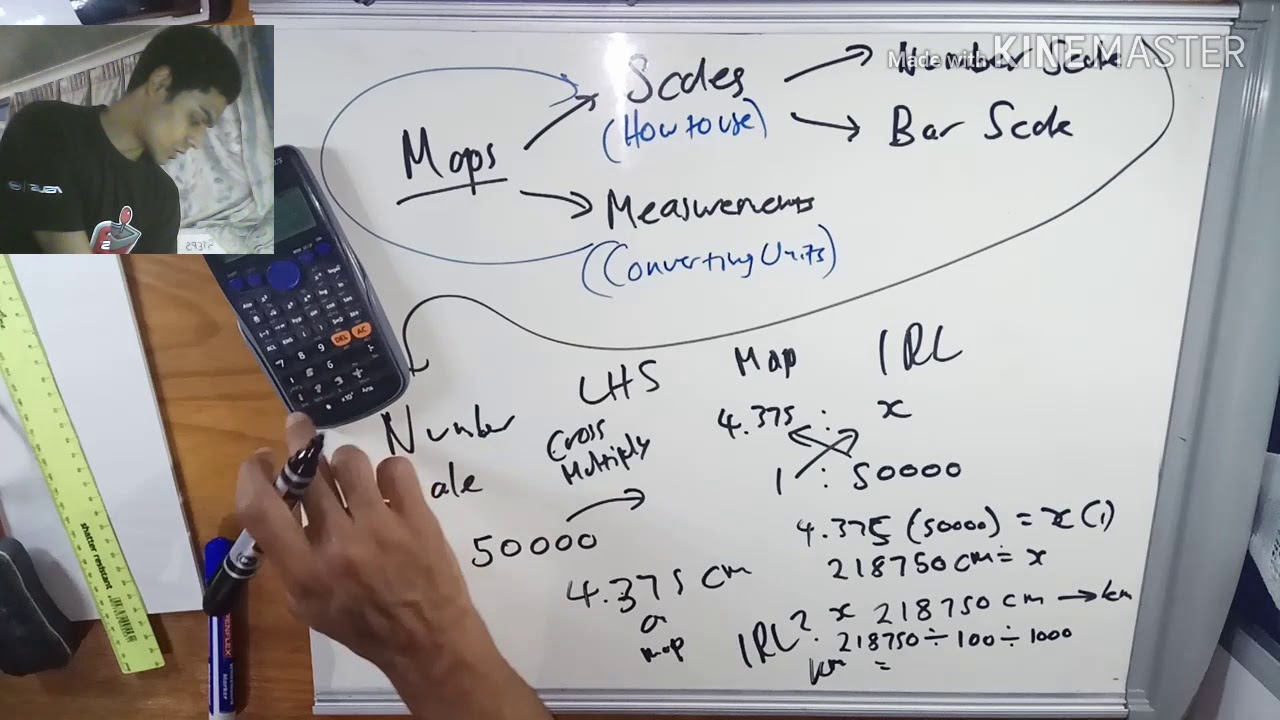 Made with KINEMASTER
Scales
Number Scale
(How to use)
Bar Scale
Maps
Measurements
(Converting Units)
LHS
Map
IRL
Number
ale
Cross
Multiply
4.375 : x
1 : 50000
50000
4.375 (50000) = x (1)
218750 cm = x
4.375 cm
on
map
IRL?
x 218750 cm → km
218750 ÷ 100 ÷ 1000
km =
shatter resistant
PENFLEX
Marker
DEL
AC
7 8 9